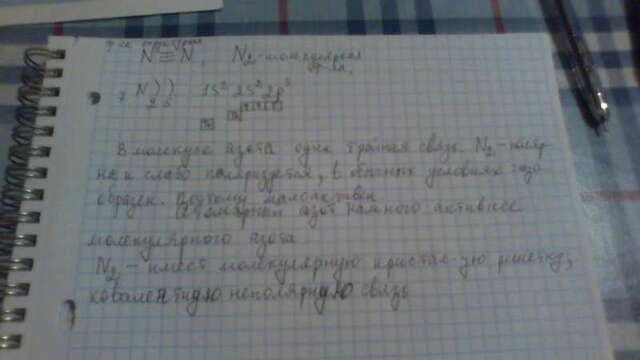 N≡N, N₂ - молекулярная
ф-ла.
7 N ) ) 1S² 2S² 2p³
2 5
В молекуле азота одна тройная связь. N₂ - непол
на и слабо поляризуется, в обычных условиях газо
образен. Поэтому малоактивен
Атомарный азот намного активнее
молекулярного азота
N₂ - имеет молекулярную кристал-ую решетку,
ковалентную неполярную связь